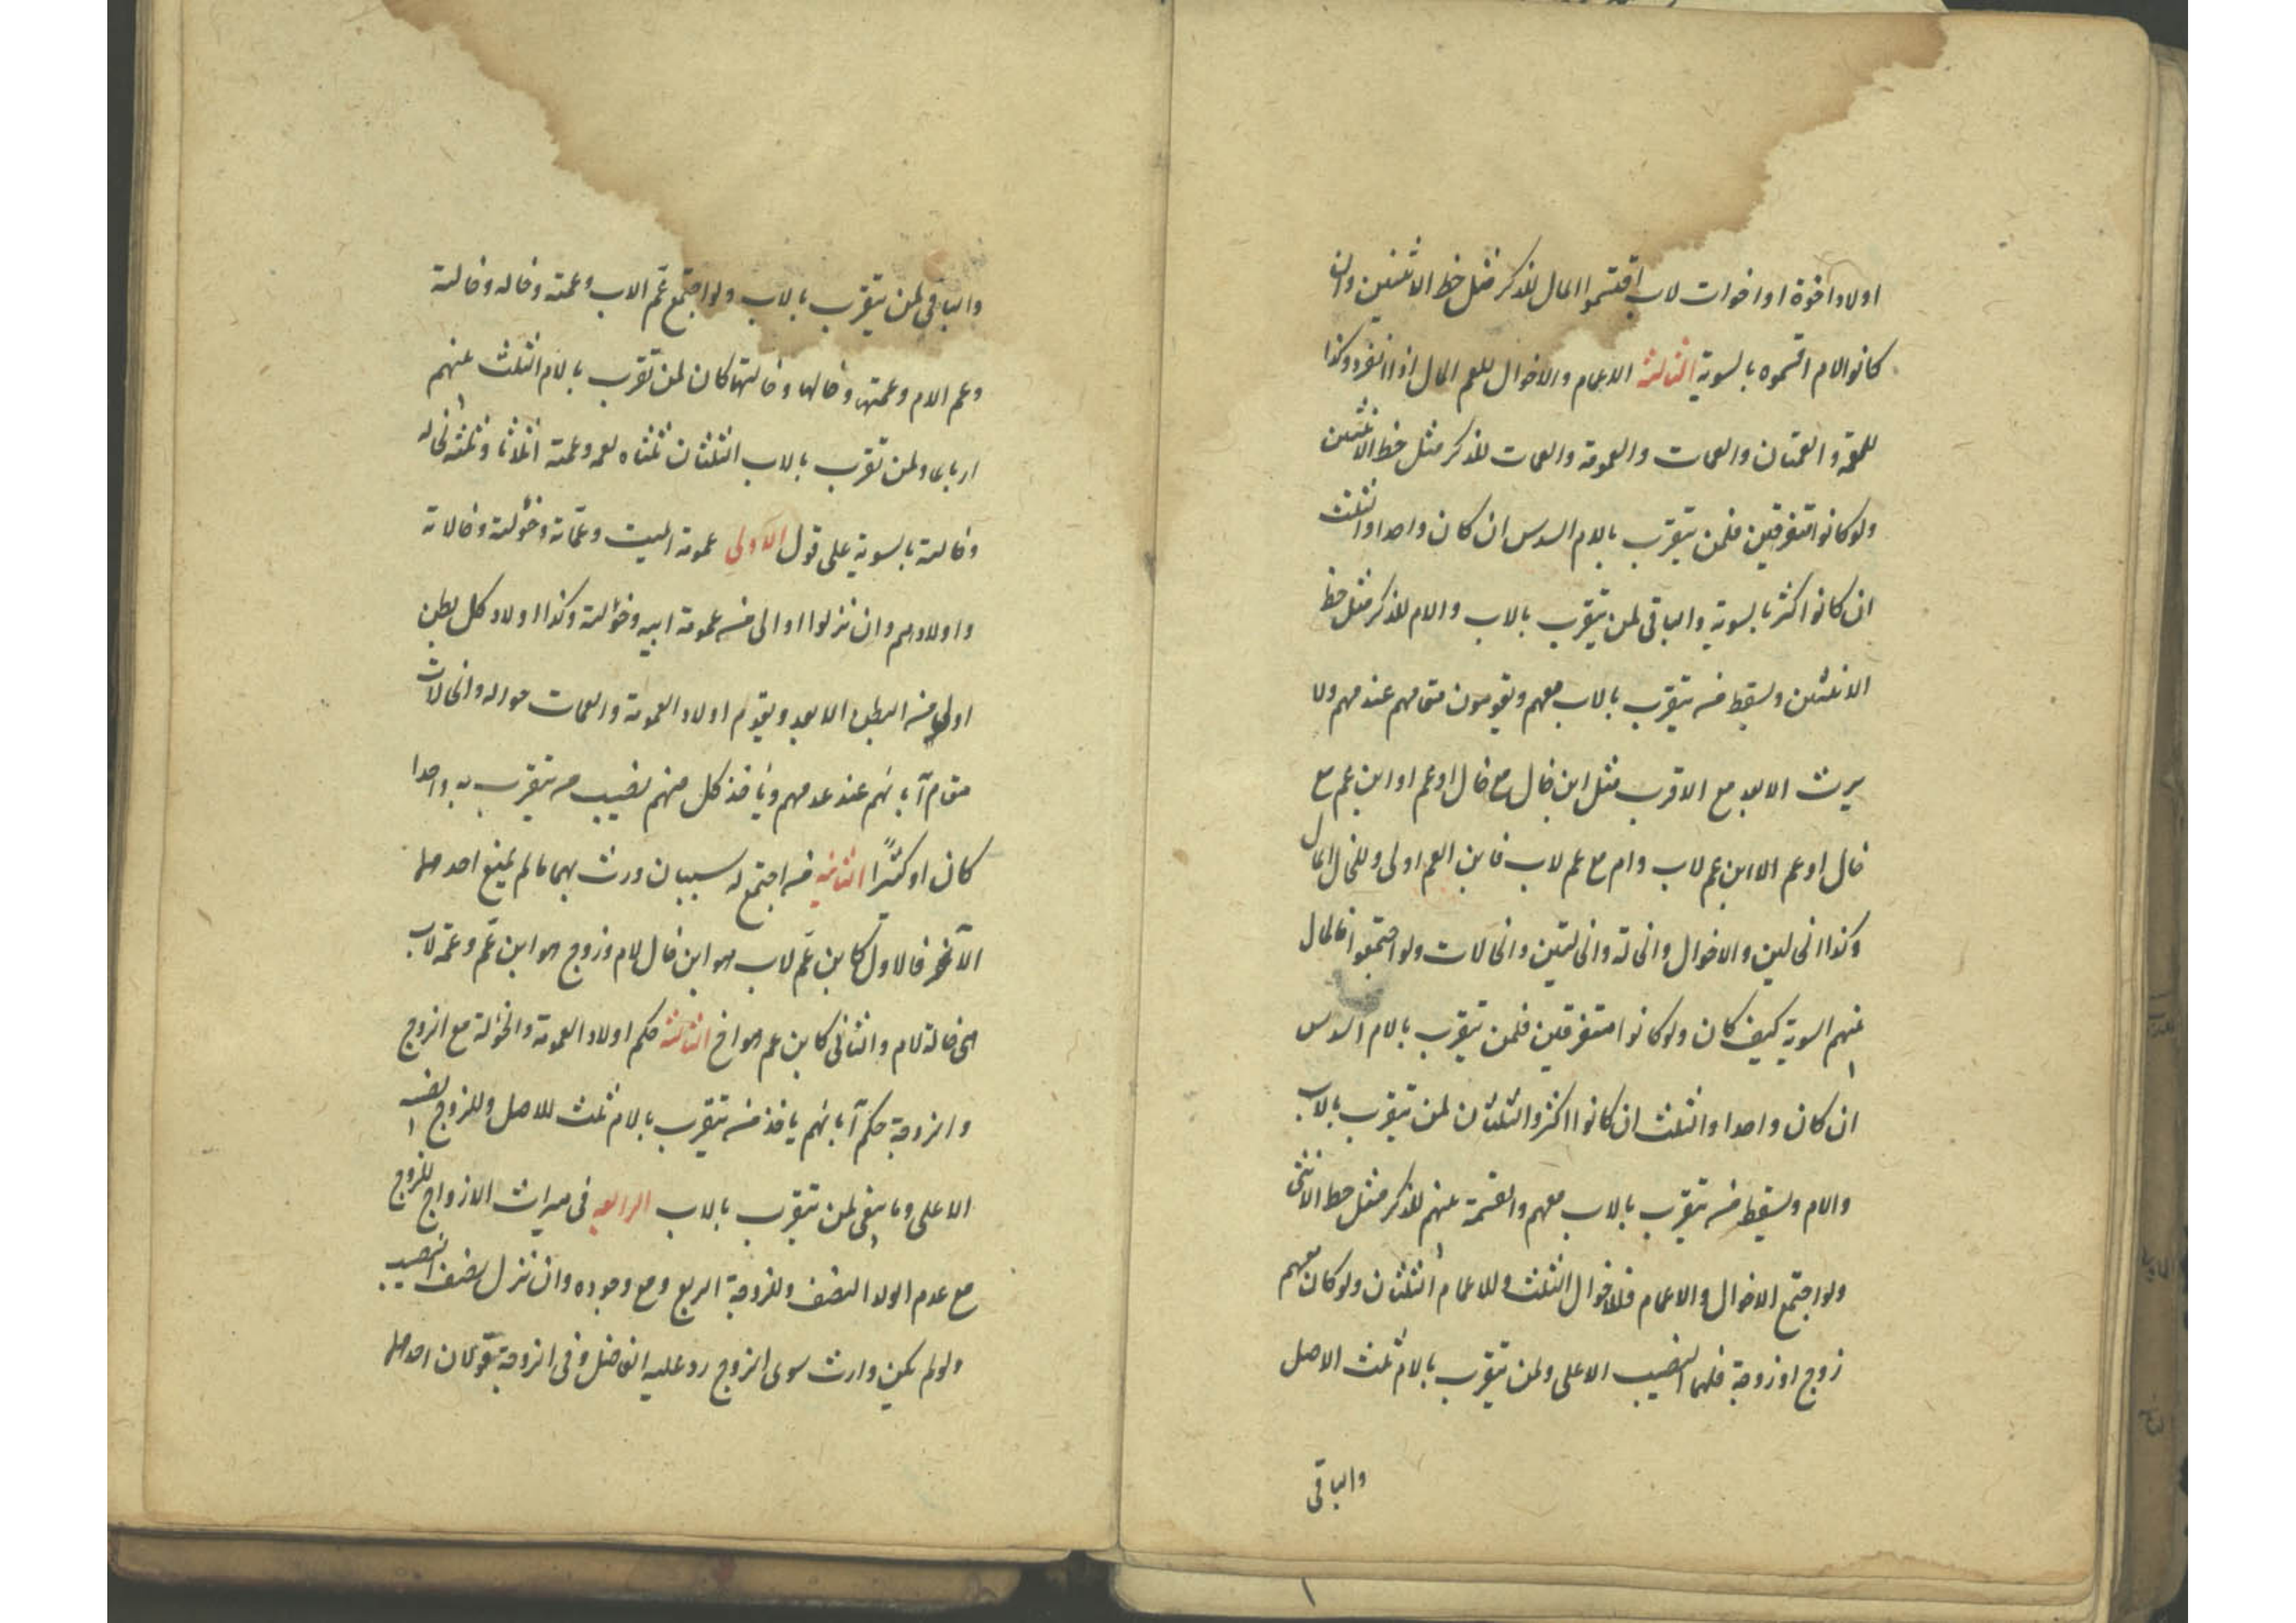 اولاد اخوة او اخوات لاب اقتسموا المال للذكر مثل حظ الانثيين وان
كانوا لام اقتسموه بالسوية الثالثة الاعمام والاخوال للعم المال اذا انفرد وكذا
للعمة و العمتان والعمات والعمومة والعمات للذكر مثل حظ الانثيين
ولو كانوا متفرقين فلمن يتقرب بالام السدس ان كان واحدا والثلث
ان كانوا اكثر بالسوية والباقى لمن يتقرب بالاب والام للذكر مثل حظ
الانثيين ويسقط من يتقرب بالاب معهم ويقومون مقامهم عند عدمهم ولا
يرث الابعد مع الاقرب مثل ابن خال مع خال او عم او ابن عم مع
خال او عم الا ابن عم لاب وام مع عم لاب فابن العم اولى وللخال المال
وكذا الخالين والاخوال والخالة والخالتين والخالات ولو اجتمعوا فالمال
بينهم السوية كيف كان ولو كانوا متفرقين فلمن يتقرب بالام السدس
ان كان واحدا والثلث ان كانوا اكثر والثلثان لمن يتقرب بالاب
والام ويسقط من يتقرب بالاب معهم والقسمة بينهم للذكر مثل حظ الانثى
ولو اجتمع الاخوال والاعمام فللاخوال الثلث وللاعمام الثلثان ولو كان معهم
زوج او زوجة فلهما النصيب الاعلى ولمن يتقرب بالام ثلث الاصل
والباقى
والباقي لمن يتقرب بالاب ولو اجتمع عم الاب وعمته وخاله وخالته
وعم الام وعمتها وخالها وخالتها كان لمن تقرب بالام الثلث بينهم
ارباعا ولمن تقرب بالاب الثلثان ثلثاه لعمه وعمته اثلاثا وثلثه لخاله
وخالته بالسوية على قول الاولى عمومة الميت وعماته وخؤلته وخالاته
واولادهم وان نزلوا اولى من عمومة ابيه وخؤلته وكذا اولاد كل بطن
اولى من البطن الابعد ويقوم اولاد العمومة والعمات والخالات
مقام آبائهم عند عدمهم وياخذ كل منهم نصيب من يتقرب به واحدا
كان او كثيرًا الثانية من اجتمع له سببان ورث بهما ما لم يمنع احدهما
الآخر فالاول كابن عم لاب هو ابن خال لام وزوج هو ابن عم وعمة لاب
هى خالة لام والثانى كابن عم هو اخ الثالثة حكم اولاد العمومة والخؤلة مع الزوج
والزوجة حكم آبائهم ياخذ من يتقرب بالام ثلث الاصل وللزوج نصيبه
الاعلى وما بقى لمن يتقرب بالاب الرابع فى ميراث الازواج للزوج
مع عدم الولد النصف وللزوجة الربع ومع وجوده وان نزل نصف النصيب
ولو لم يكن وارث سوى الزوج رد عليه الفاضل وفى الزوجة قولان احدهما